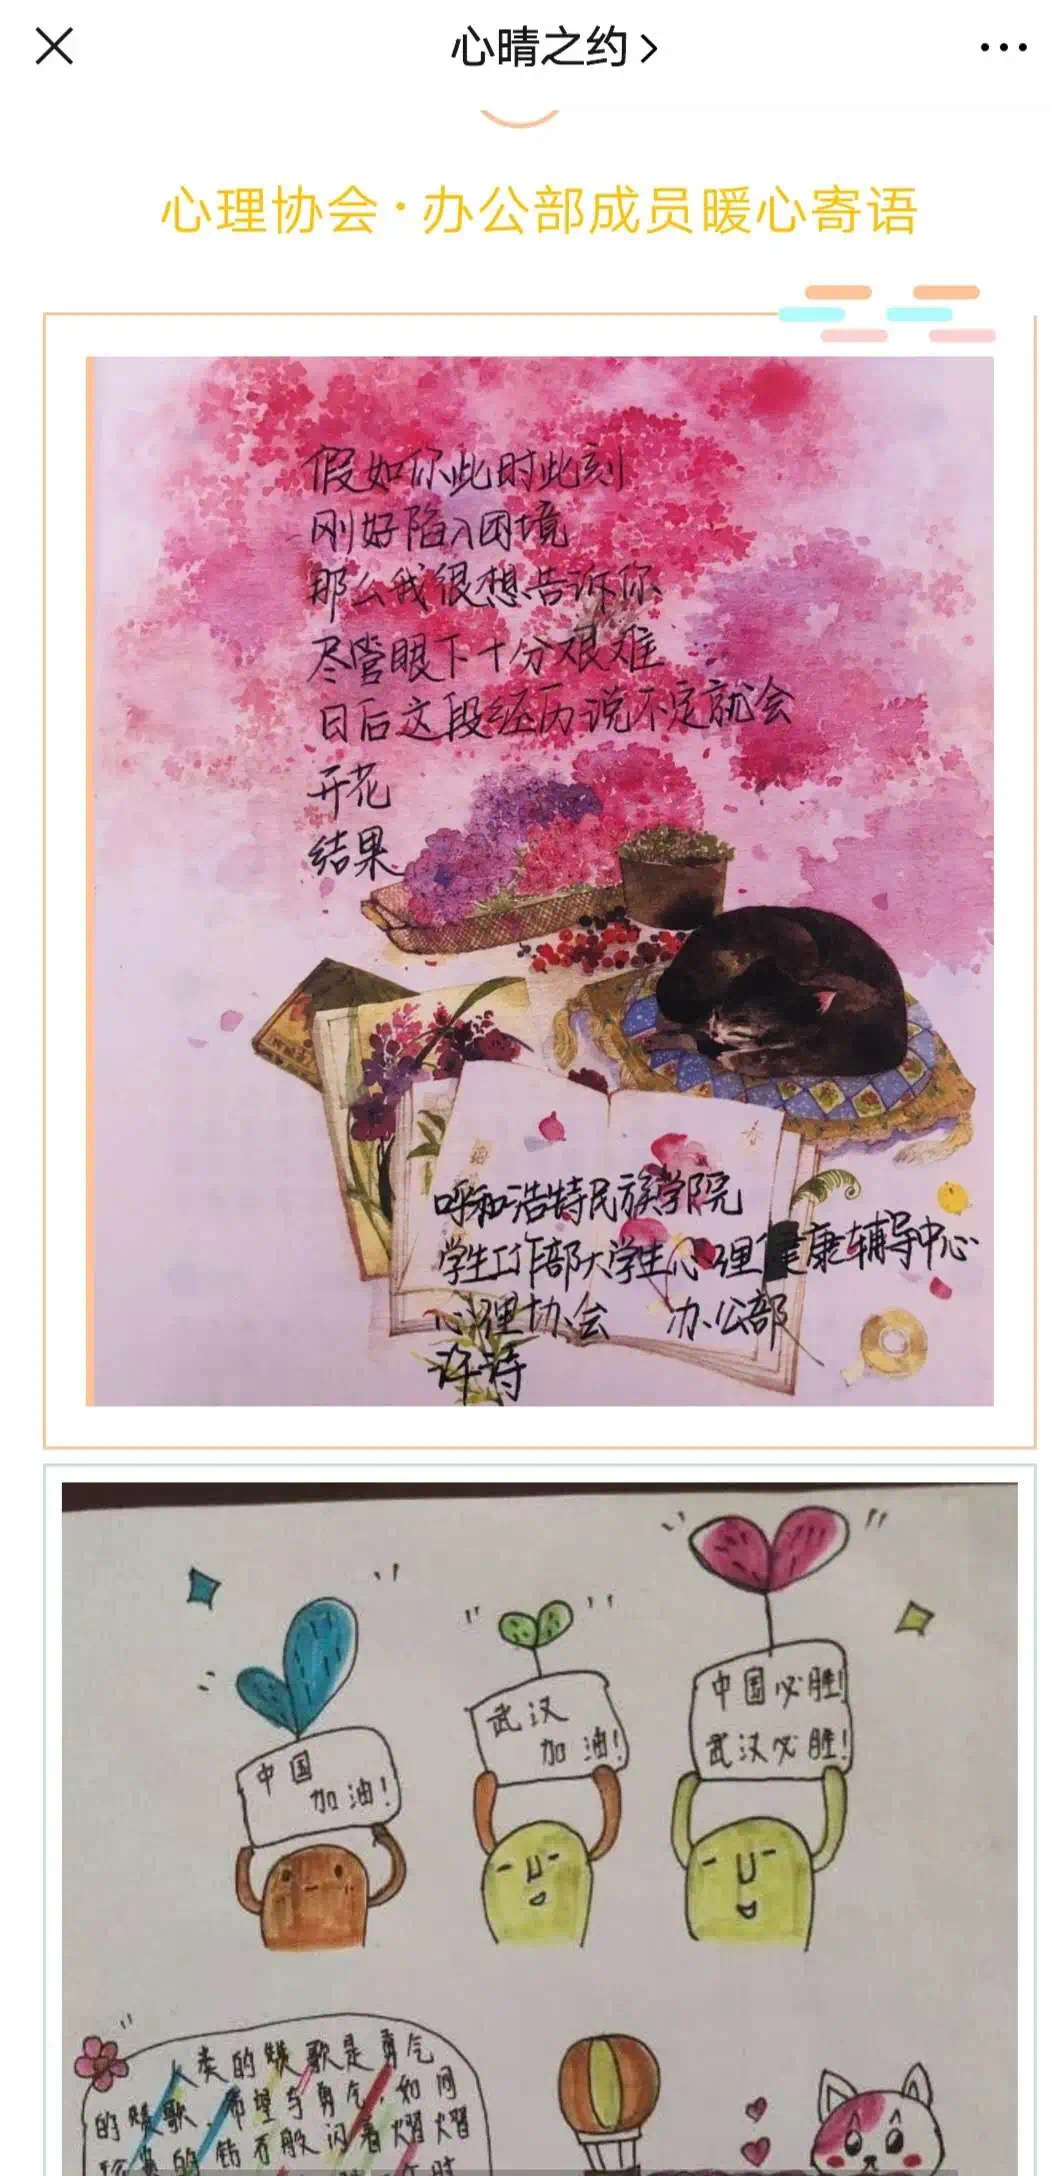 心晴之约
心理协会·办公部成员暖心寄语
假如你此时此刻
刚好陷入困境
那么我很想告诉你
尽管眼下十分艰难
日后这段经历说不定就会
开花
结果
呼和浩特民族学院
学生工作部大学生心理健康辅导中心
心理协会 办公部
许诗
中国
加油!
武汉
加油!
中国必胜!
武汉必胜!
人类的赞歌是勇气
的赞歌、希望与勇气,如同
的钻石般闪着熠熠